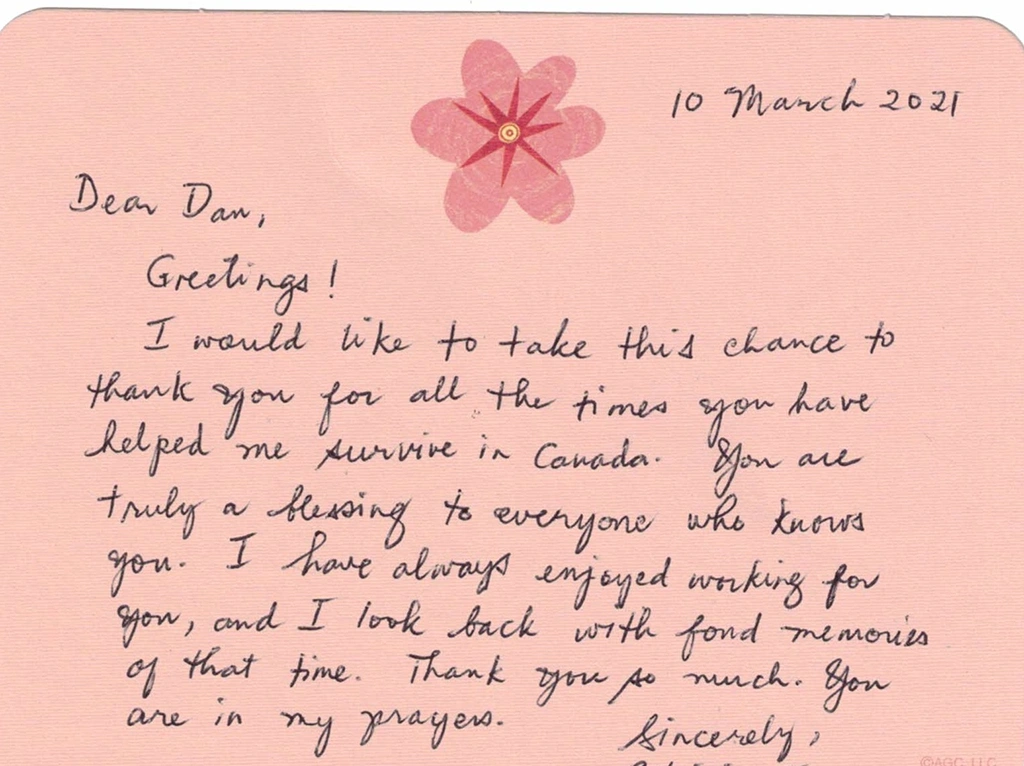 10 March 2021
Dear Dan,
Greetings!
I would like to take this chance to
thank you for all the times you have
helped me survive in Canada. You are
truly a blessing to everyone who knows
you. I have always enjoyed working for
you, and I look back with fond memories
of that time. Thank you so much. You
are in my prayers.
Sincerely,
©AGC, LLC